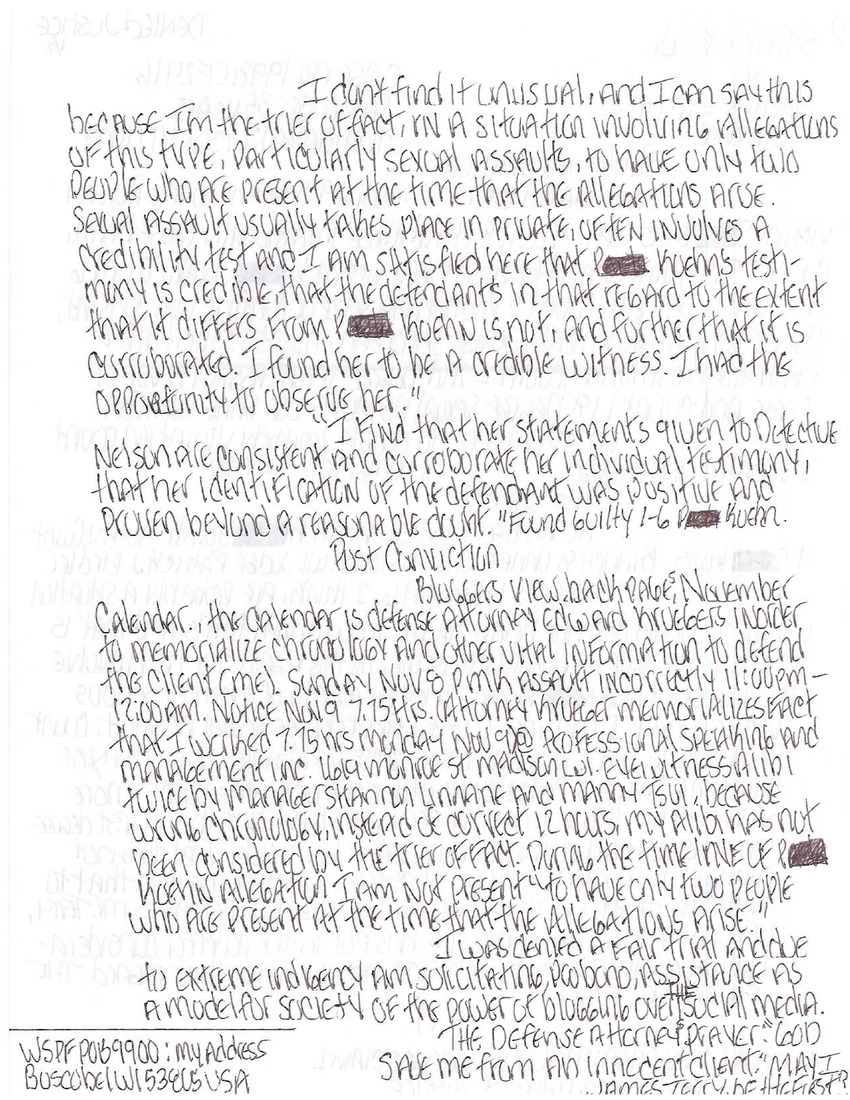 I dont find it unusual, and I can say this
because I'm the trier of fact, in a situation involving allegations
of this type, particularly sexual assaults, to have only two
people who are present at the time that the allegations arise.
Sexual assault usually takes place in private, often involves a
credibility test and I am satisfied here that P Koehn's testi-
mony is credible, that the defendants in that regard to the extent
that it differs from P Koehn is not, and further that it is
corroborated. I found her to be a credible witness. I had the
opportunity to observe her."
"I find that her statements given to Detective
Nelson are consistent and corroborate her individual testimony,
that her identification of the defendant was positive and
proven beyond a reasonable doubt. "Found guilty 1-6 P Koehn.
Post Conviction
Bloggers view back page, November
Calendar., the calendar is defense Attorney Edward Kruegers inorder
to memorialize chronology and other vital information to defend
the client (me). Sunday Nov 8 PMK assault incorrectly 11:00pm-
12:00am. Notice Nov 9 7.75 hrs (Attorney Krueger memorializes fact
that I worked 7.75 hrs Monday Nov 9) @ Professional Speaking and
management inc. 1619 Monroe st Madison wi. eyewitness alibi
twice by manager Shannon Linnane and Manny Tsui, because
wrong chronology, instead of correct 12 hours, my alibi has not
been considered by the trier of fact. During the time line of P
Koehn allegation I am not present "to have only two people
who are present at the time that the allegations arise."
I was denied a fair trial and due
to extreme indigency am solicitating, probono, assistance as
a model for society of the power of blogging over the social media.
The Defense Attorneys Prayer: "God
save me from an innocent client." May I
James Terry, be the first!?
WSPF POB 9900: my address
Boscobel WI 53805 USA